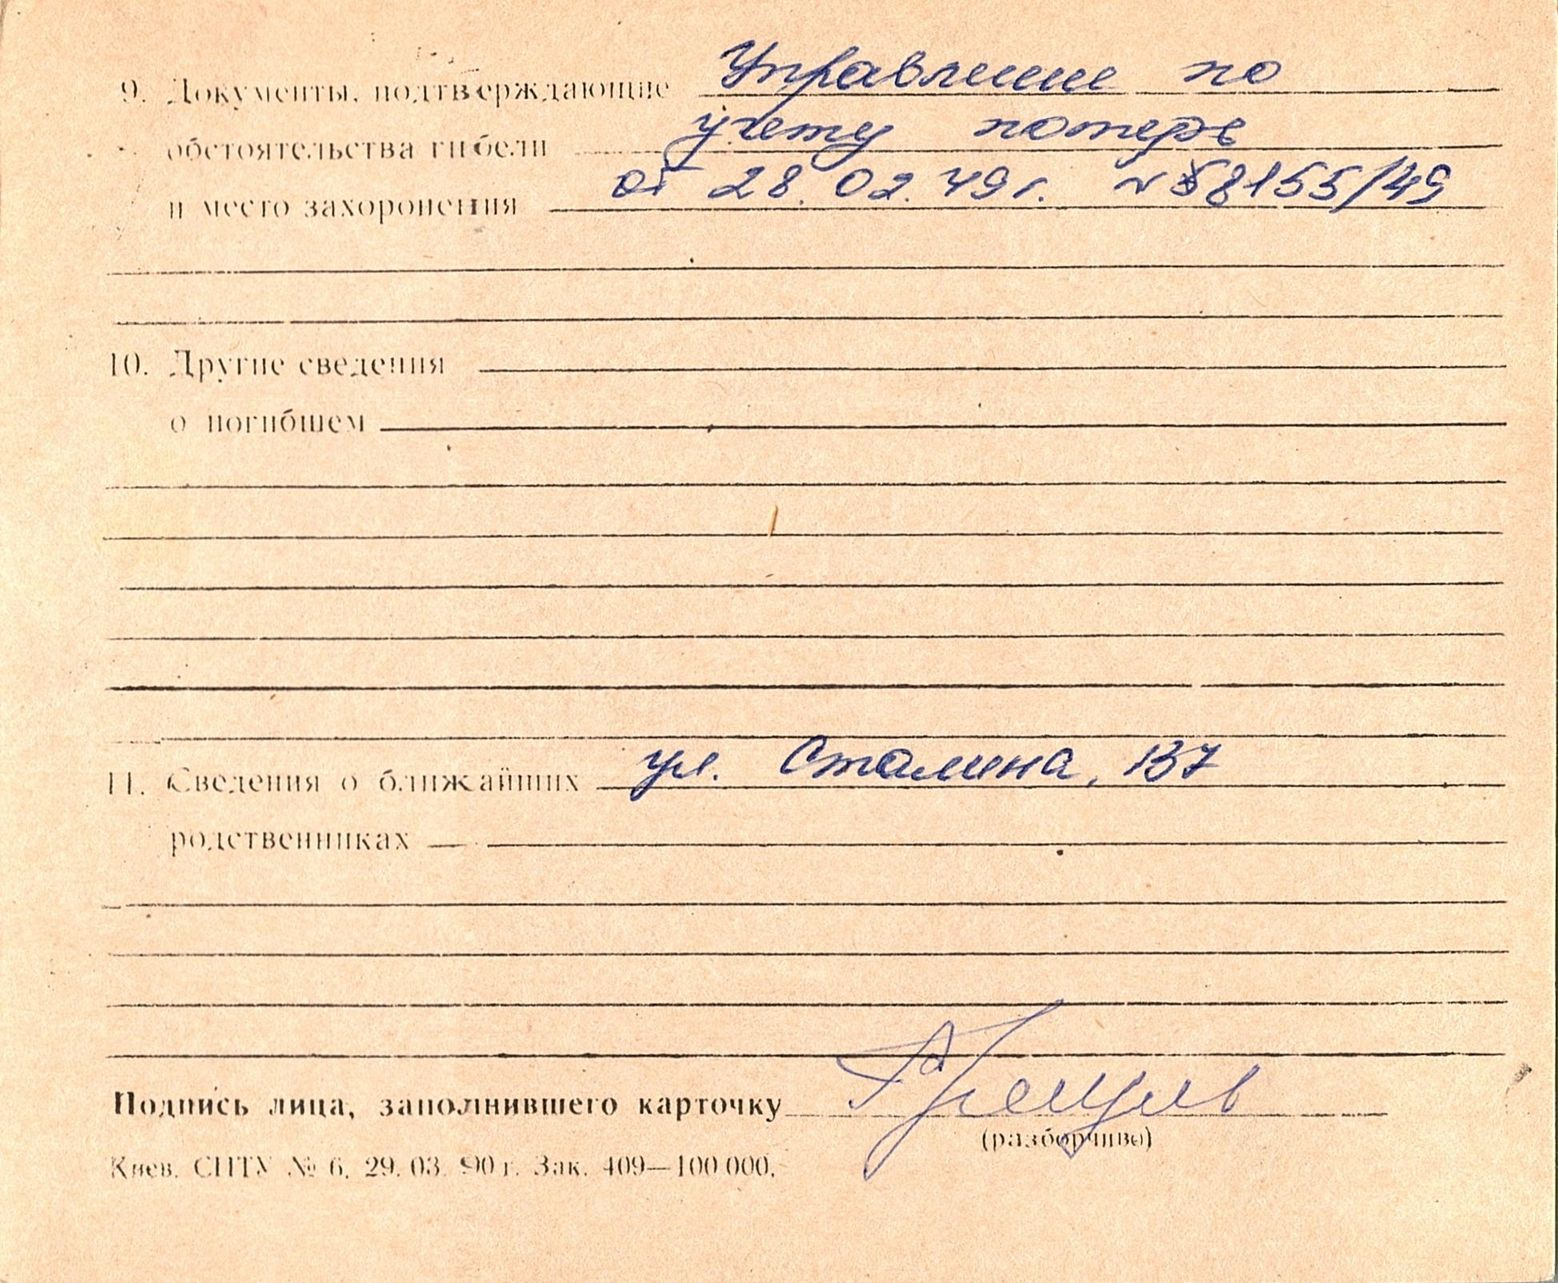 9. Документы, подтверждающие Управление по
обстоятельства гибели учету потерь
и место захоронения от 28.02.49 г. № 58155/49
10. Другие сведения
о погибшем
11. Сведения о ближайших ул. Сталина, 137
родственниках
Подпись лица, заполнившего карточку
(разборчиво)
Киев. СПТУ № 6. 29.03.90 г. Зак. 409—100 000.